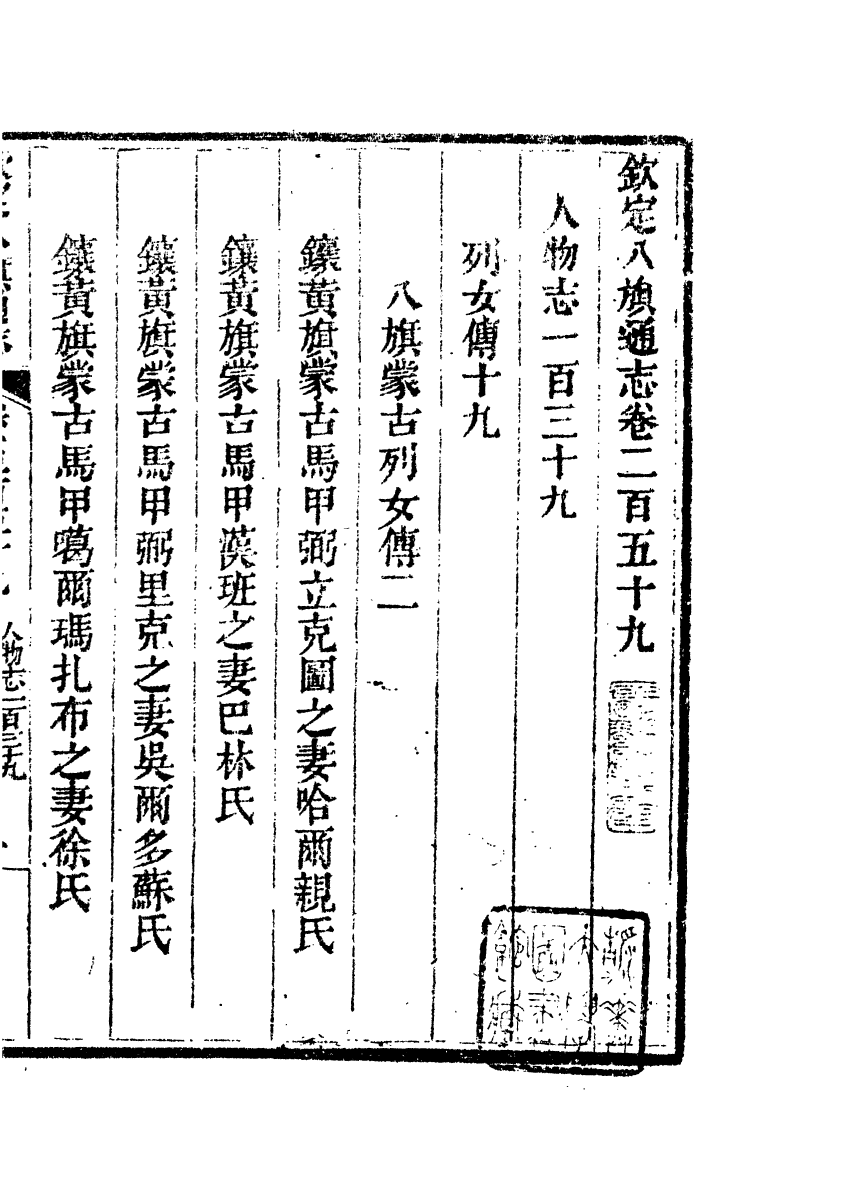 欽定八旗通志卷二百五十九
人物志一百三十九
列女傳十九
八旗蒙古列女傳二
鑲黃旗蒙古馬甲弼立克圖之妻哈爾親氏
鑲黃旗蒙古馬甲漠班之妻巴林氏
鑲黃旗蒙古馬甲弼里克之妻吳爾多蘇氏
鑲黃旗蒙古馬甲噶爾瑪扎布之妻徐氏
人物志一百三十九